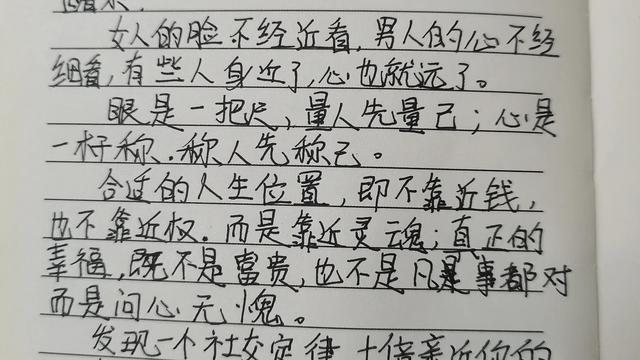 女人的脸不经近看,男人的心不经
细看,有些人身近了,心也就远了。
眼是一把尺,量人先量己;心是
一杆称.称人先称己。
合适的人生位置,即不靠近钱,
也不靠近权.而是靠近灵魂;真正的
幸福,既不是富贵,也不是凡是事都对
而是问心无愧。
发现一个社交定律
亲近你的